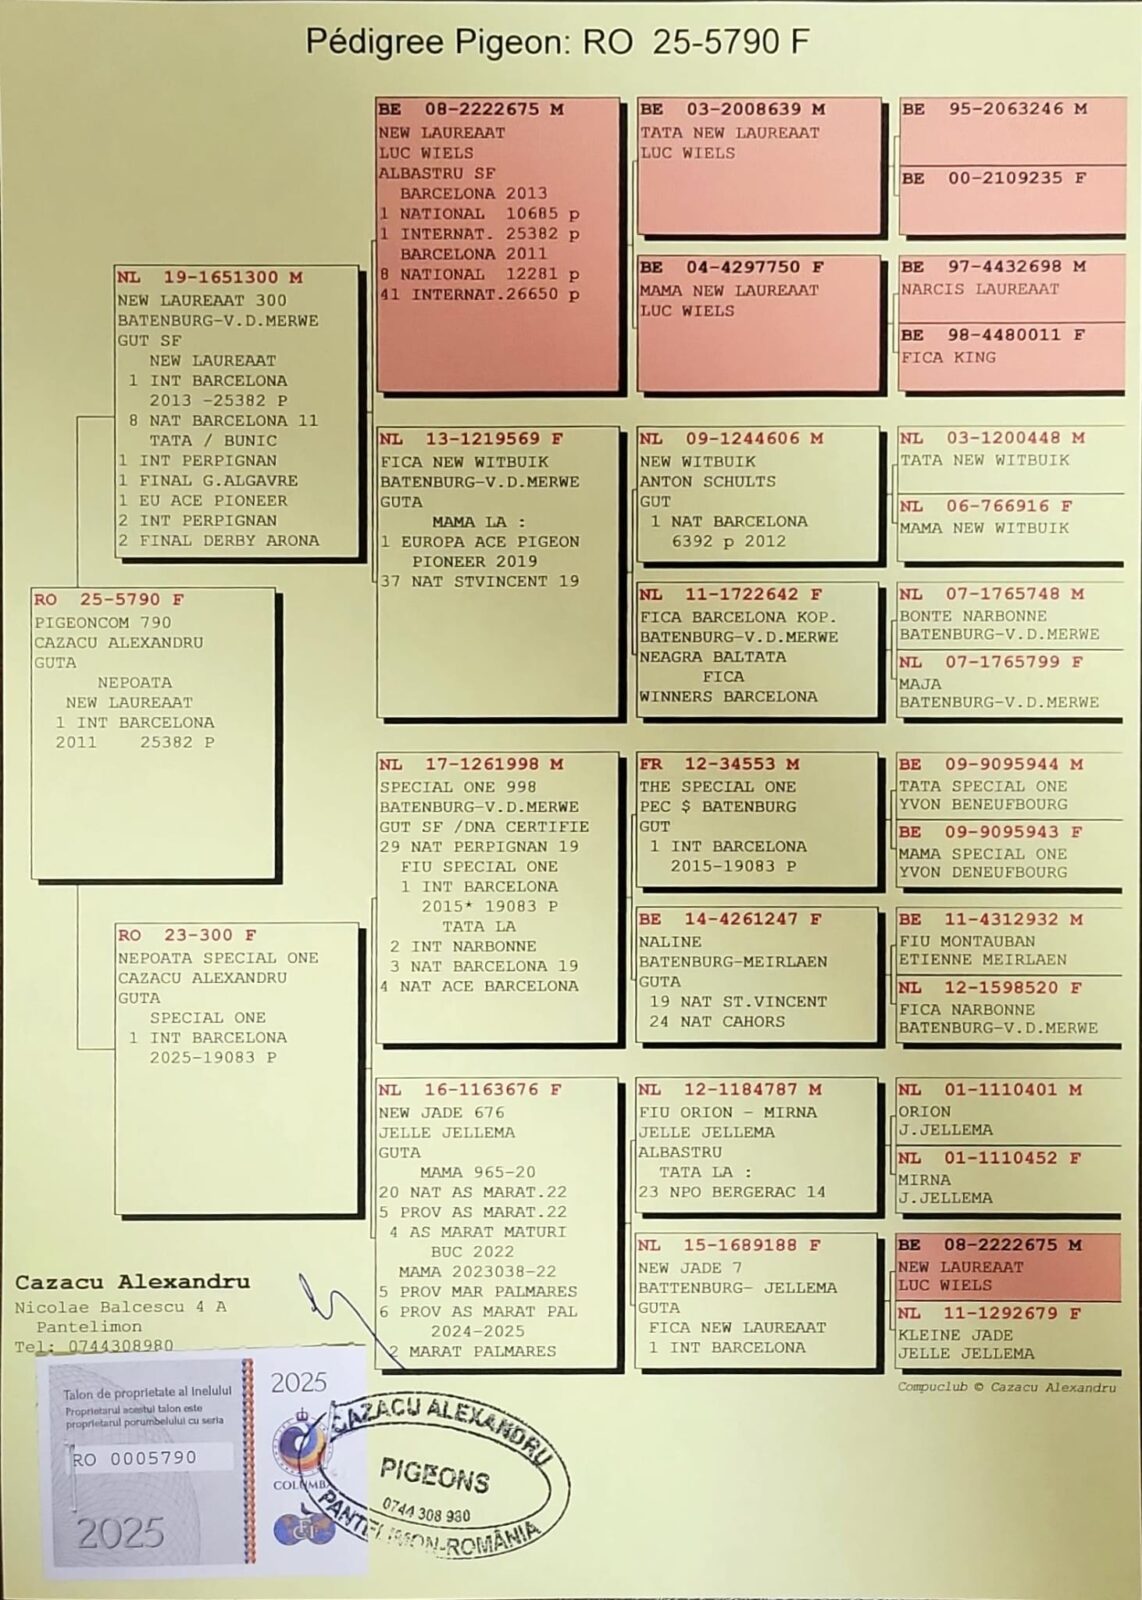 Pédigree Pigeon: RO 25-5790 F
RO 25-5790 F
PIGEONCOM 790
CAZACU ALEXANDRU
GUTA
NEPOATA
NEW LAUREAAT
1 INT BARCELONA
2011 25382 P
NL 19-1651300 M
NEW LAUREAAT 300
BATENBURG-V.D.MERWE
GUT SF
NEW LAUREAAT
1 INT BARCELONA
2013 -25382 P
8 NAT BARCELONA 11
TATA / BUNIC
1 INT PERPIGNAN
1 FINAL G.ALGAVRE
1 EU ACE PIONEER
2 INT PERPIGNAN
2 FINAL DERBY ARONA
RO 23-300 F
NEPOATA SPECIAL ONE
CAZACU ALEXANDRU
GUTA
SPECIAL ONE
1 INT BARCELONA
2025-19083 P
BE 08-2222675 M
NEW LAUREAAT
LUC WIELS
ALBASTRU SF
BARCELONA 2013
1 NATIONAL 10685 p
1 INTERNAT. 25382 p
BARCELONA 2011
8 NATIONAL 12281 p
41 INTERNAT.26650 p
NL 13-1219569 F
FICA NEW WITBUIK
BATENBURG-V.D.MERWE
GUTA
MAMA LA :
1 EUROPA ACE PIGEON
PIONEER 2019
37 NAT STVINCENT 19
NL 17-1261998 M
SPECIAL ONE 998
BATENBURG-V.D.MERWE
GUT SF /DNA CERTIFIE
29 NAT PERPIGNAN 19
FIU SPECIAL ONE
1 INT BARCELONA
2015* 19083 P
TATA LA
2 INT NARBONNE
3 NAT BARCELONA 19
4 NAT ACE BARCELONA
NL 16-1163676 F
NEW JADE 676
JELLE JELLEMA
GUTA
MAMA 965-20
20 NAT AS MARAT.22
5 PROV AS MARAT.22
4 AS MARAT MATURI
BUC 2022
MAMA 2023038-22
5 PROV MAR PALMARES
6 PROV AS MARAT PAL
2024-2025
2 MARAT PALMARES
BE 03-2008639 M
TATA NEW LAUREAAT
LUC WIELS
BE 04-4297750 F
MAMA NEW LAUREAAT
LUC WIELS
NL 09-1244606 M
NEW WITBUIK
ANTON SCHULTS
GUT
1 NAT BARCELONA
6392 p 2012
NL 11-1722642 F
FICA BARCELONA KOP.
BATENBURG-V.D.MERWE
NEAGRA BALTATA
FICA
WINNERS BARCELONA
FR 12-34553 M
THE SPECIAL ONE
PEC $ BATENBURG
GUT
1 INT BARCELONA
2015-19083 P
BE 14-4261247 F
NALINE
BATENBURG-MEIRLAEN
GUTA
19 NAT ST.VINCENT
24 NAT CAHORS
NL 12-1184787 M
FIU ORION - MIRNA
JELLE JELLEMA
ALBASTRU
TATA LA :
23 NPO BERGERAC 14
NL 15-1689188 F
NEW JADE 7
BATTENBURG- JELLEMA
GUTA
FICA NEW LAUREAAT
1 INT BARCELONA
BE 95-2063246 M
BE 00-2109235 F
BE 97-4432698 M
NARCIS LAUREAAT
BE 98-4480011 F
FICA KING
NL 03-1200448 M
TATA NEW WITBUIK
NL 06-766916 F
MAMA NEW WITBUIK
NL 07-1765748 M
BONTE NARBONNE
BATENBURG-V.D.MERWE
NL 07-1765799 F
MAJA
BATENBURG-V.D.MERWE
BE 09-9095944 M
TATA SPECIAL ONE
YVON BENEUFBOURG
BE 09-9095943 F
MAMA SPECIAL ONE
YVON DENEUFBOURG
BE 11-4312932 M
FIU MONTAUBAN
ETIENNE MEIRLAEN
NL 12-1598520 F
FICA NARBONNE
BATENBURG-V.D.MERWE
NL 01-1110401 M
ORION
J.JELLEMA
NL 01-1110452 F
MIRNA
J.JELLEMA
BE 08-2222675 M
NEW LAUREAAT
LUC WIELS
NL 11-1292679 F
KLEINE JADE
JELLE JELLEMA
Compuclub © Cazacu Alexandru
Cazacu Alexandru
Nicolae Balcescu 4 A
Pantelimon
Tel: 0744308980
Talon de proprietate al inelului
Proprietarul acestui talon este
proprietarul porumbelului cu seria
RO 0005790
2025
2025
COLUMBA
FCI
CAZACU ALEXANDRU
PIGEONS
0744 308 980
PANTELIMON-ROMÂNIA